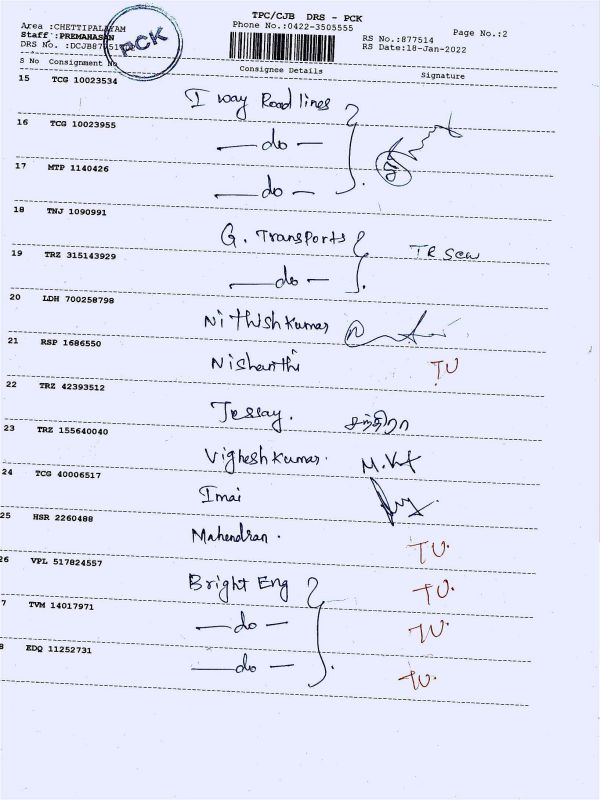 TPC/CJB DRS - PCK
Area :CHETTIPALAYAM
Phone No.:0422-3505555
Page No.:2
Staff :PREMAHASAN
RS No.:877514
DRS No. :DCJB877514
RS Date:18-Jan-2022
PCK
S No Consignment No
Consignee Details
Signature
15 TCG 10023534
I way Roadlines
16 TCG 10023955
—do—
17 MTP 1140426
—do—
18 TNJ 1090991
G. Transports
TR Sew
19 TRZ 315143929
—do—
20 LDH 700258798
Nithishkumar
21 RSP 1686550
Nishanthi
TU
22 TRZ 42393512
Jessay.
சந்திரா
23 TRZ 155640040
Vighesh Kumar.
24 TCG 40006517
Imai
25 HSR 2260488
Mahendran.
TU.
26 VPL 517824557
Bright Eng
TU.
7 TVM 14017971
—do—
TU.
8 EDQ 11252731
—do—
TU.